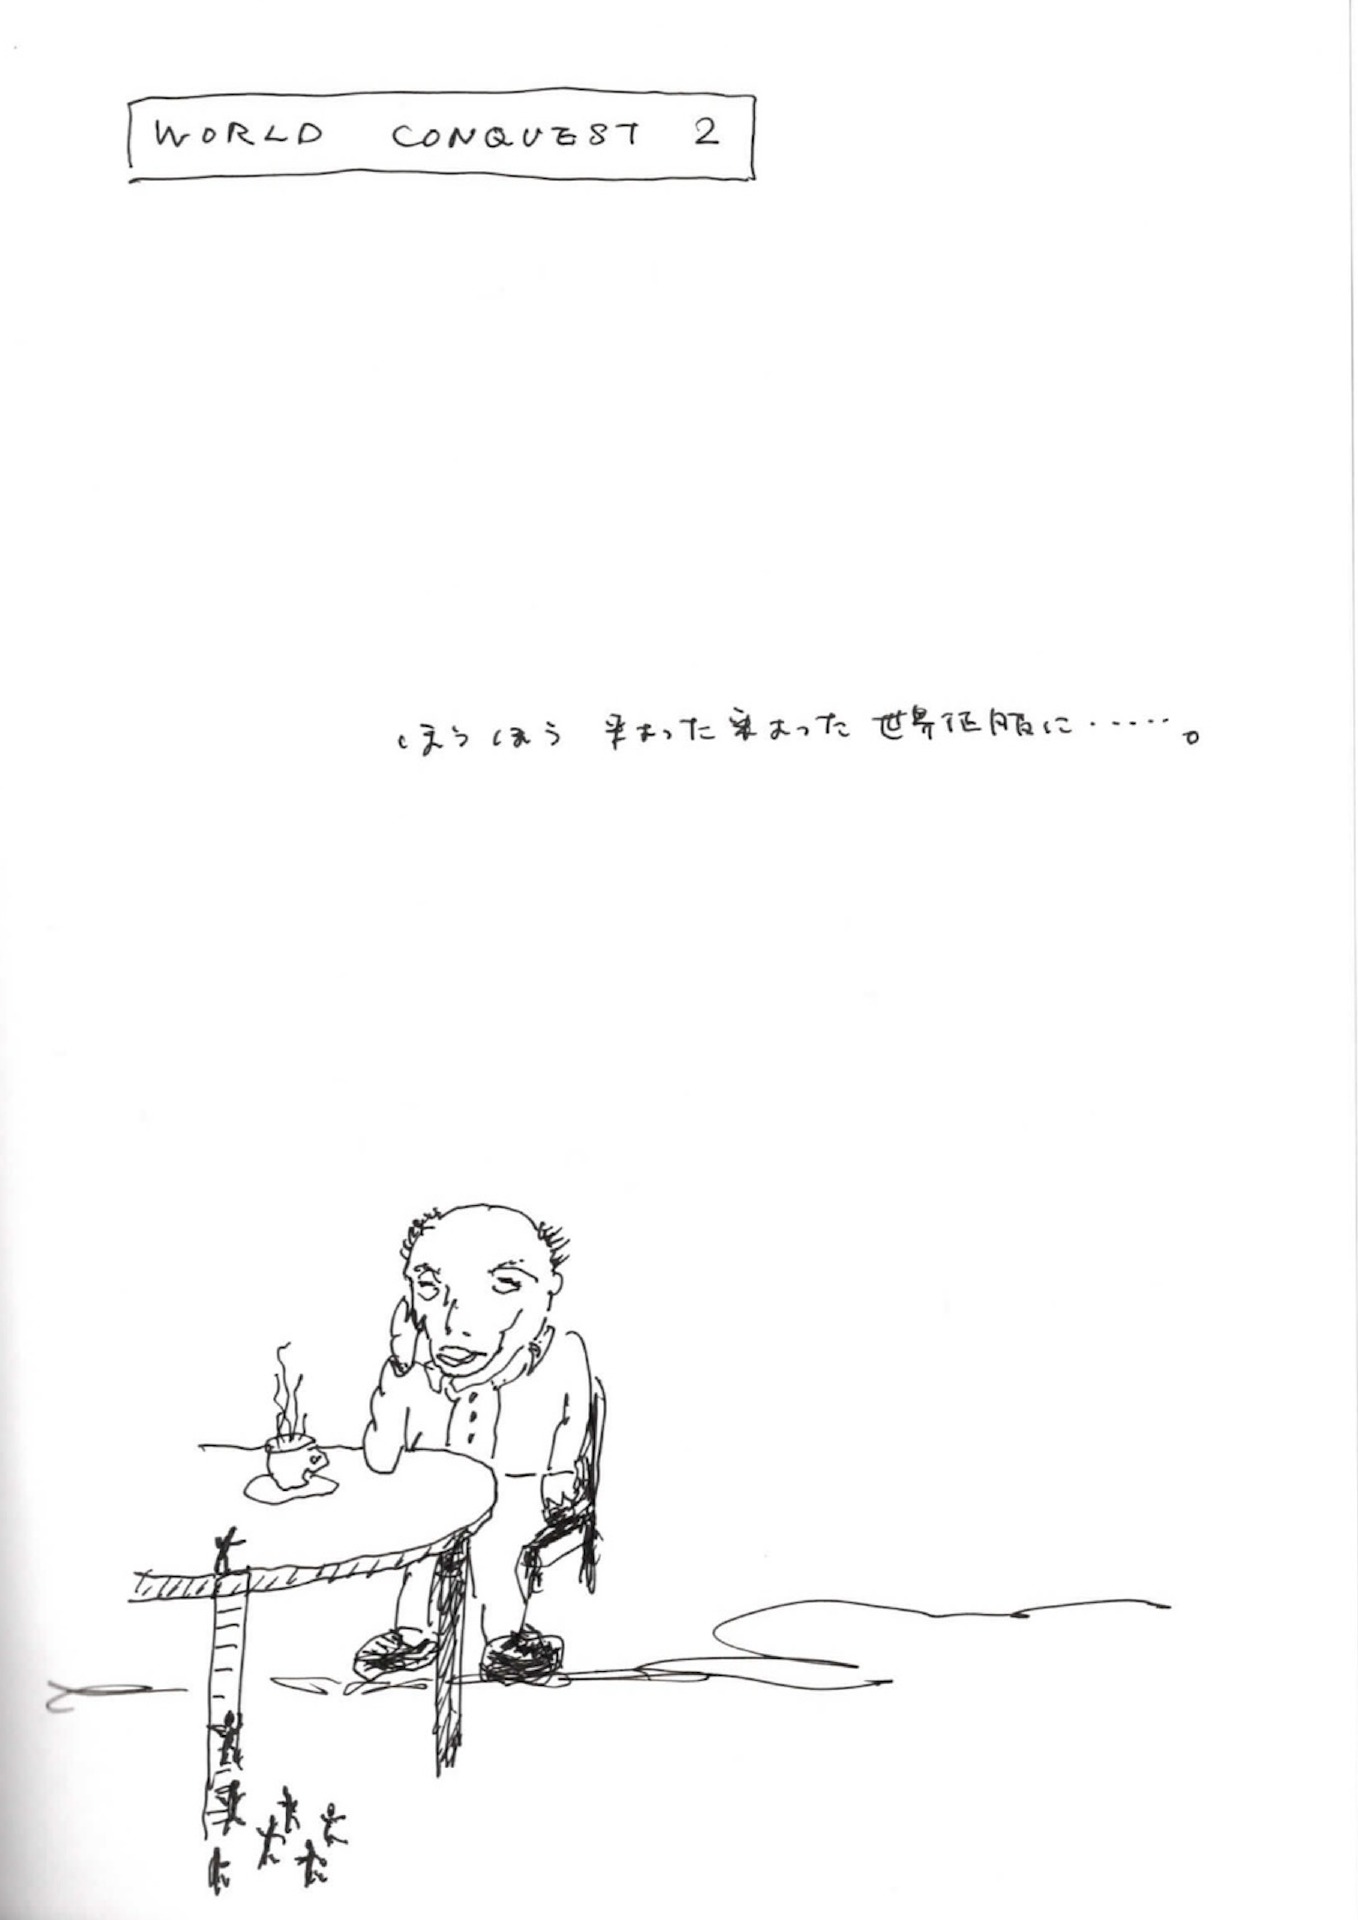 WORLD CONQUEST 2
ほうほう 来よった来よった 世界征服に・・・・・・。